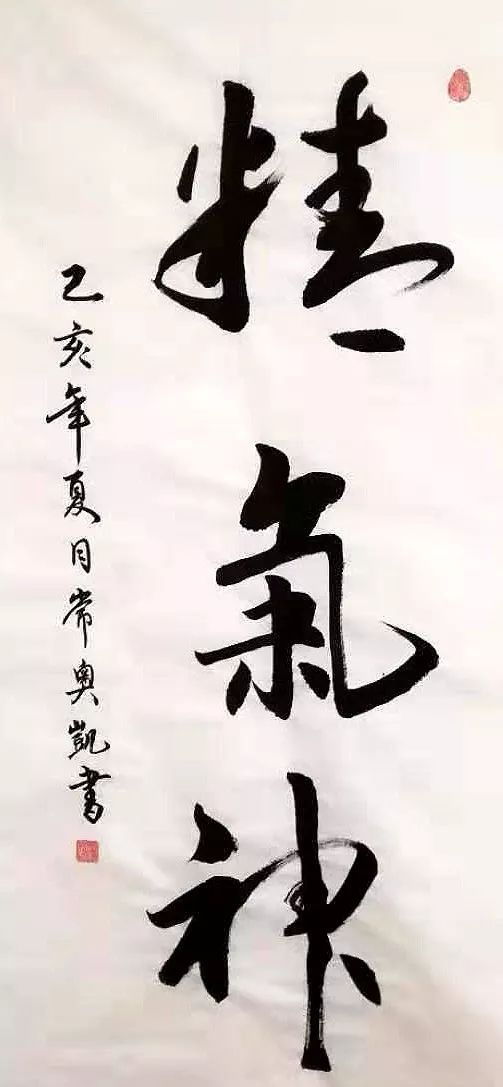 精氣神
乙亥年夏月常奥凱書